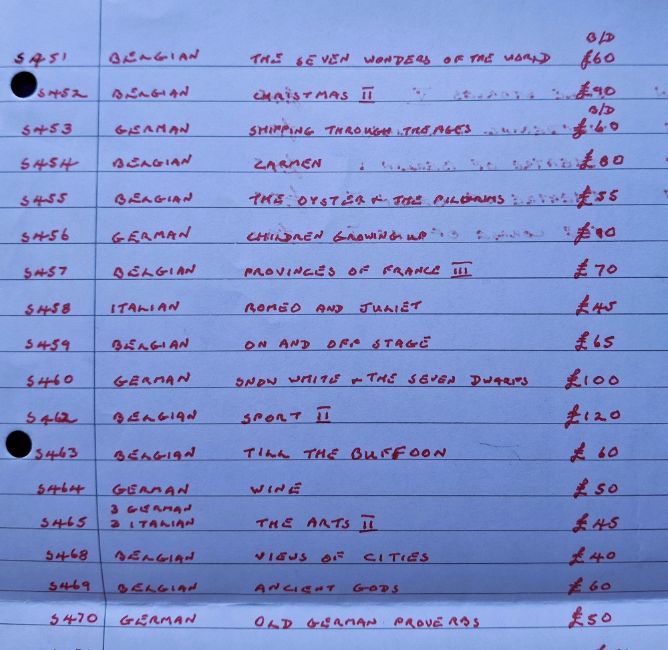 B/D
S451 BELGIAN THE SEVEN WONDERS OF THE WORLD £60
S452 BELGIAN CHRISTMAS II £90
B/D
S453 GERMAN SHIPPING THROUGH THE AGES £60
S454 BELGIAN CARMEN £80
S455 BELGIAN THE OYSTER + THE PILGRIMS £55
S456 GERMAN CHILDREN GROWING UP £90
S457 BELGIAN PROVINCES OF FRANCE III £70
S458 ITALIAN ROMEO AND JULIET £45
S459 BELGIAN ON AND OFF STAGE £65
S460 GERMAN SNOW WHITE + THE SEVEN DWARFS £100
S462 BELGIAN SPORT II £120
S463 BELGIAN TILL THE BUFFOON £60
S464 GERMAN WINE £50
3 GERMAN
S465 3 ITALIAN THE ARTS II £45
S468 BELGIAN VIEWS OF CITIES £40
S469 BELGIAN ANCIENT GODS £60
S470 GERMAN OLD GERMAN PROVERBS £50